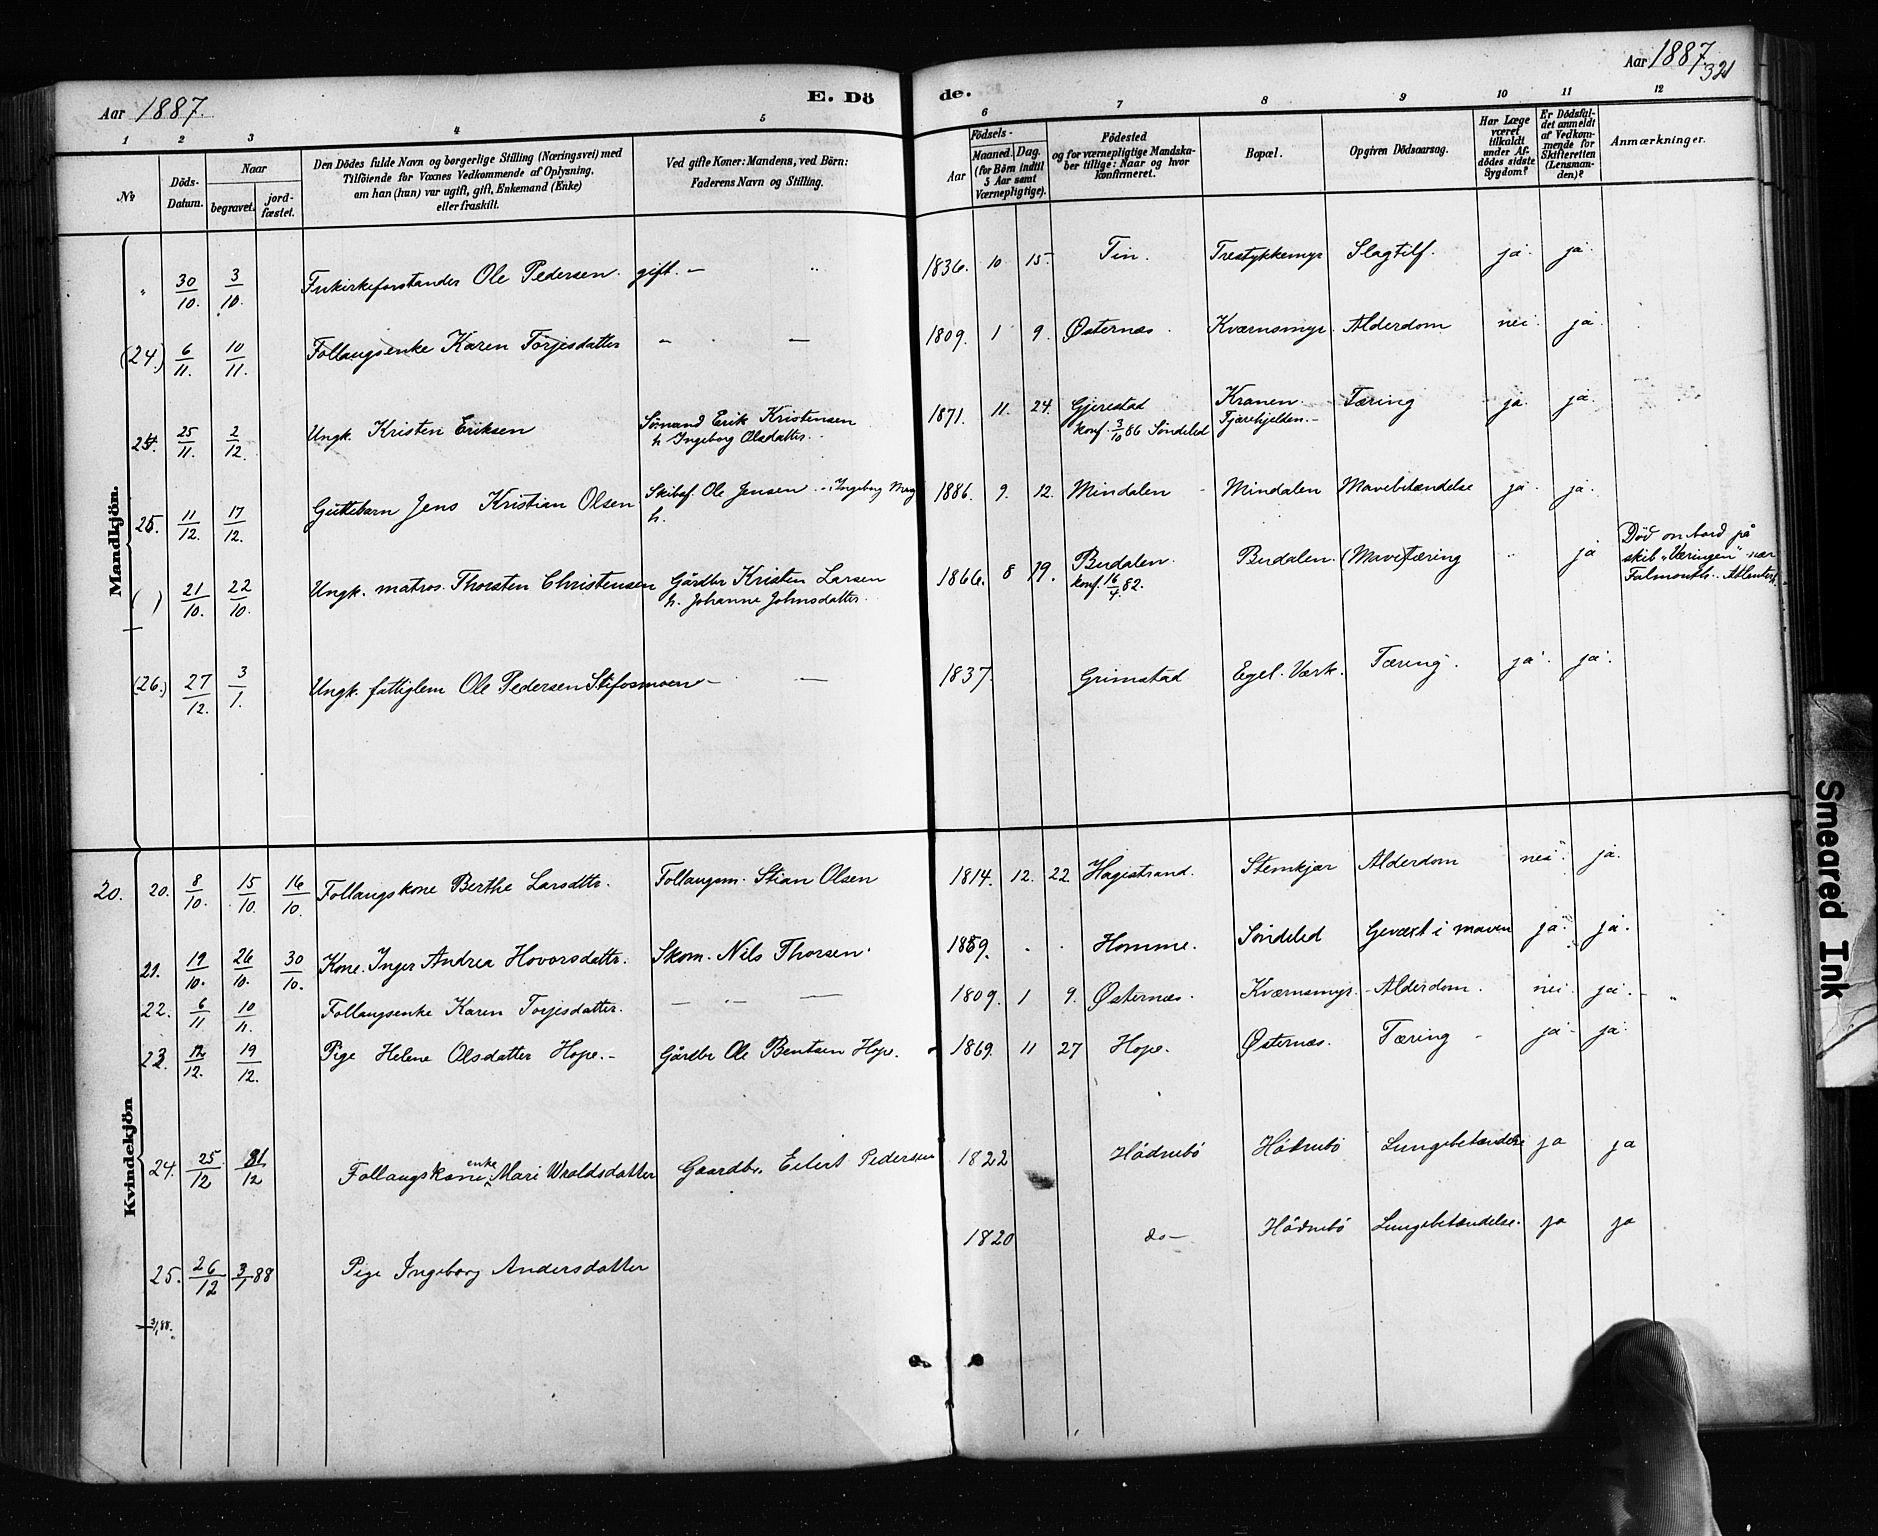 Aar 1887. E. Döde. Aar 1887.
321
1 2 3 4 5 6 7 8 9 10 11 12
No
Döds-Datum.
Naar begravet. jordfæstet.
Den Dödes fulde Navn og borgerlige Stilling (Næringsvei) med Tilföiende for Voxnes Vedkommende af Oplysning, om han (hun) var ugift, gift, Enkemand (Enke) eller fraskilt.
Ved gifte Koner: Mandens, ved Börn: Faderens Navn og Stilling.
Födsels-
Aar Maaned. Dag. (for Börn indtil 5 Aar samt Værnepligtige).
Födested og for værnepligtige Mandskaber tillige: Naar og hvor Konfirmeret.
Bopæl.
Opgiven Dödsaarsag.
Har Læge været tilkaldt under Afdödes sidste Sygdom?
Er Dödsfaldet anmeldt af Vedkommende for Skifteretten (Lensmanden)?
Anmærkninger.
Mandkjön.
" 30/10. 3/10. Frikirkeforstander Ole Pedersen. gift. — " 1836. 10 15 Tin. Trestykkemyr Slagtilf. ja. ja.
(24.) 6/11. 10/11. Follaugsenke Karen Torjesdatter — . — 1809. 1 9. Østernæs. Kværnsmyr. Alderdom nei. ja.
24. 25/11. 2/12. Ungk. Kristen Eriksen Sömand Erik Kristensen 1871. 11. 24. Gjerestad Kranen. Tæring ja. ja.
h. Ingeborg Olsdatter. konf. 3/10 86 Söndeled Fjærehjelden.
25. 11/12. 17/12. Guttebarn Jens Kristian Olsen Skibsf. Ole Jensen — Ingeborg Mag 1886. 9. 12. Mindalen Mindalen Mavebetændelse ja. ja.
h.
( ) 21/10. 22/10. Ungk. matros. Thorsten Christensen Gårdbr Kristen Larsen 1866. 8 19. Budalen. Budalen. (Mave)tæring " ja Död ombord på
h. Johanne Johnsdatter. konf. 16/4 82. skib "Væringen" nær
Falmouth. Atlanterh.
(26.) 27/12. 3/1. Ungk. fattiglem Ole Pedersen Stifosmoen — — 1837. Grimstad Egel. Værk. Tæring. ja. ja.
Kvindekjön
20. 20. 8/10. 15/10. 16/10. Follaugskone Berthe Larsdttr. Follaugsm. Stian Olsen 1814. 12. 22. Hagestrand. Stemkjær Alderdom nei. ja.
21. 19/10. 26/10. 30/10. Kone. Inger Andrea Hovorsdatter. Skom. Nils Thorsen. 1859. . . Homme. Söndeled Gevæxt i maven ja. ja.
22. 6/11 10/11. Follaugsenke Karen Torjesdatter. — — — 1809. 1 9. Østernæs. Kværnsmyr. Alderdom. nei. ja. "
23. 12/12. 19/12. Pige Helene Olsdatter Hope. Gårdbr Ole Bentsen Hope. 1869. 11 27 Hope. Østernæs. Tæring ja. ja.
24. 25/12 31/12 Follaugskone enke Mari Wraldsdatter Gaardbr. Eilert Pedersen 1822 Hödnebö Hödnebö Lungebetændelse ja ja
25. 26/12 3/1 88 Pige Ingeborg Andersdatter 1820 do — Hödnebö Lungebetændelse. ja ja
3/1 88.
Smeared Ink